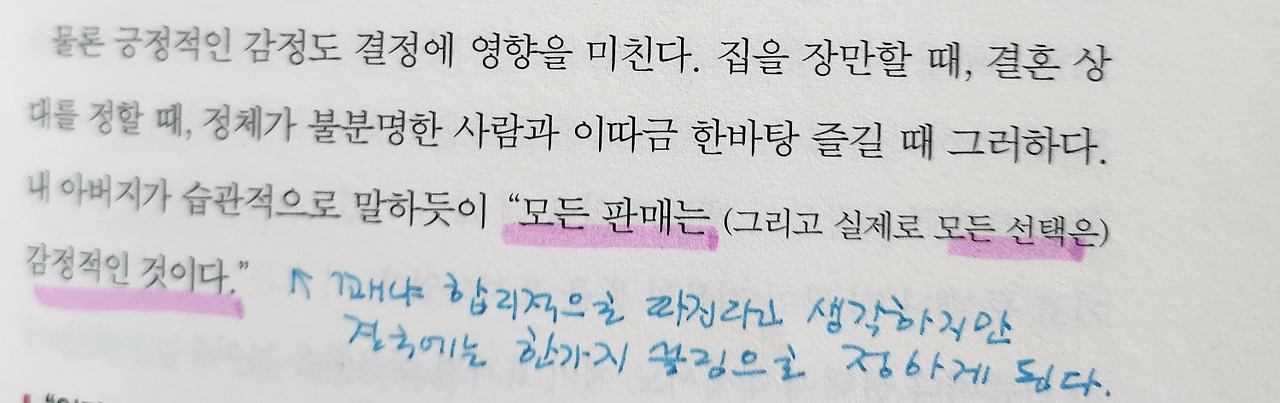 물론 긍정적인 감정도 결정에 영향을 미친다. 집을 장만할 때, 결혼 상
대를 정할 때, 정체가 불분명한 사람과 이따금 한바탕 즐길 때 그러하다.
내 아버지가 습관적으로 말하듯이 “모든 판매는 (그리고 실제로 모든 선택은)
감정적인 것이다.”
↑ 꽤나 합리적으로 따진라고 생각하지만
결국에는 한가지 끌림으로 정하게 된다.